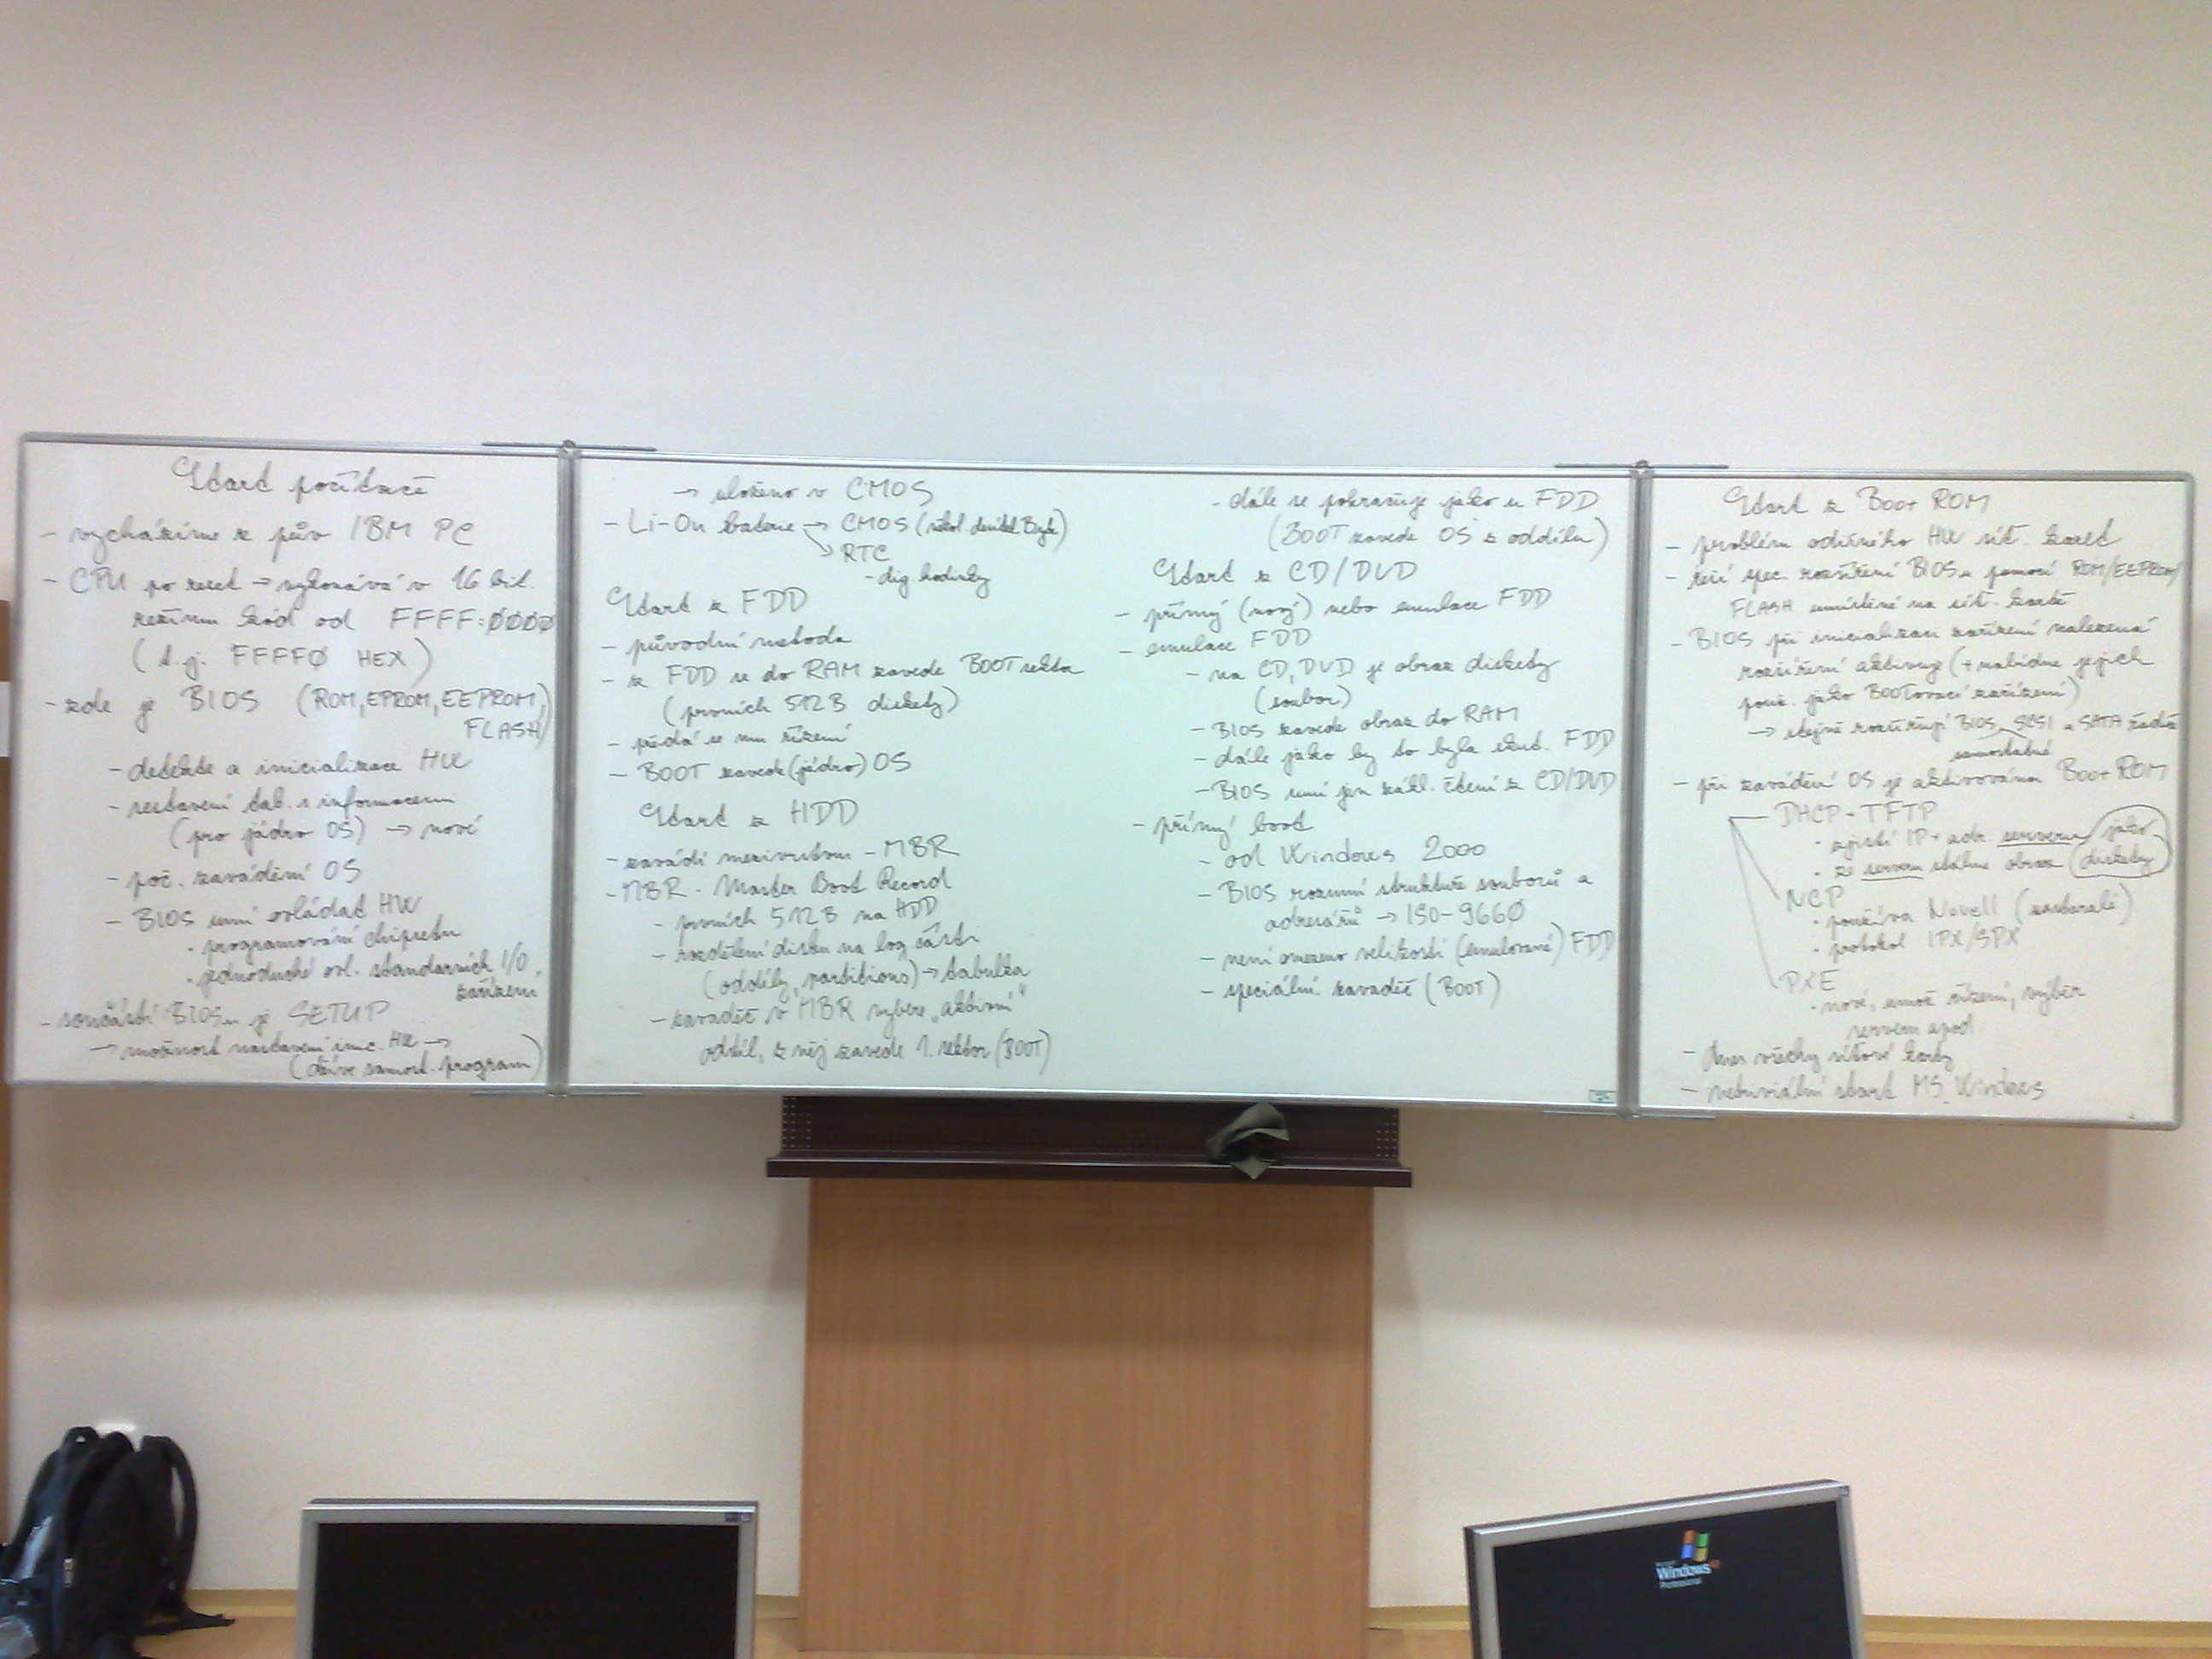 Start počítače
- vycházíme z pův IBM PC
- CPU po reset → vykonává v 16 bit.
režimu kód od FFFF:0000
(t.j. FFFF0 HEX)
- zde je BIOS (ROM, EPROM, EEPROM,
FLASH)
- detekce a inicializace HW
- sestavení tab. s informacemi
(pro jádro OS) → nové
- poč. zavádění OS
- BIOS umí ovládat HW
• programování chipsetu
• jednoduché ovl. standardních I/O
zařízení
- součástí BIOSu je SETUP
→ možnost nastavení inic. HW →
(dříve samost. program)
→ uloženo v CMOS
- Li-On baterie → CMOS (několik desítek Byte)
→ RTC
- dig hodinky
Start z FDD
- původní metoda
- z FDD se do RAM zavede BOOT sektor
(prvních 512 B diskety)
- předá se mu řízení
- BOOT zavede (jádro) OS
Start z HDD
- zavádí mezivrstvu - MBR
- MBR - Master Boot Record
- prvních 512 B na HDD
- rozdělení disku na log části
(oddíly, partitions) → tabulka
- zavaděč v MBR vybere „aktivní"
oddíl, z něj zavede 1. sektor (BOOT)
- dále se pokračuje jako u FDD
(BOOT zavede OS z oddílu)
Start z CD/DVD
- přímý (nový) nebo emulace FDD
- emulace FDD
- na CD, DVD je obraz diskety
(soubor)
- BIOS zavede obraz do RAM
- dále jako by to byla skut. FDD
- BIOS umí jen zákl. čtení z CD/DVD
- přímý boot
- od Windows 2000
- BIOS rozumí struktuře souborů a
adresářů → ISO-9660
- není omezeno velikostí (emulované) FDD
- speciální zavaděč (BOOT)
Start z Boot ROM
- problém odlišného HW síť. karet
- řeší spec. rozšíření BIOSu pomocí ROM/EEPROM/
FLASH umístěné na síť. kartě
- BIOS při inicializaci zařízení nalezená
rozšíření aktivuje (+ nabídne jejich
použ. jako BOOTovací zařízení)
→ stejně rozšiřují BIOS SCSI a SATA řadiče
samostatné
- při zavádění OS je aktivována Boot ROM
DHCP + TFTP
• zjistí IP + adr. serveru
• ze serveru stáhne obraz (jako diskety)
NCP
• používa Novell (zastaralé)
• protokol IPX/SPX
PXE
• nové, umož řízení, výběr
serveru apod
- dnes všechy síťové karty
- netriviální start MS Windows
Windows xp
Professional